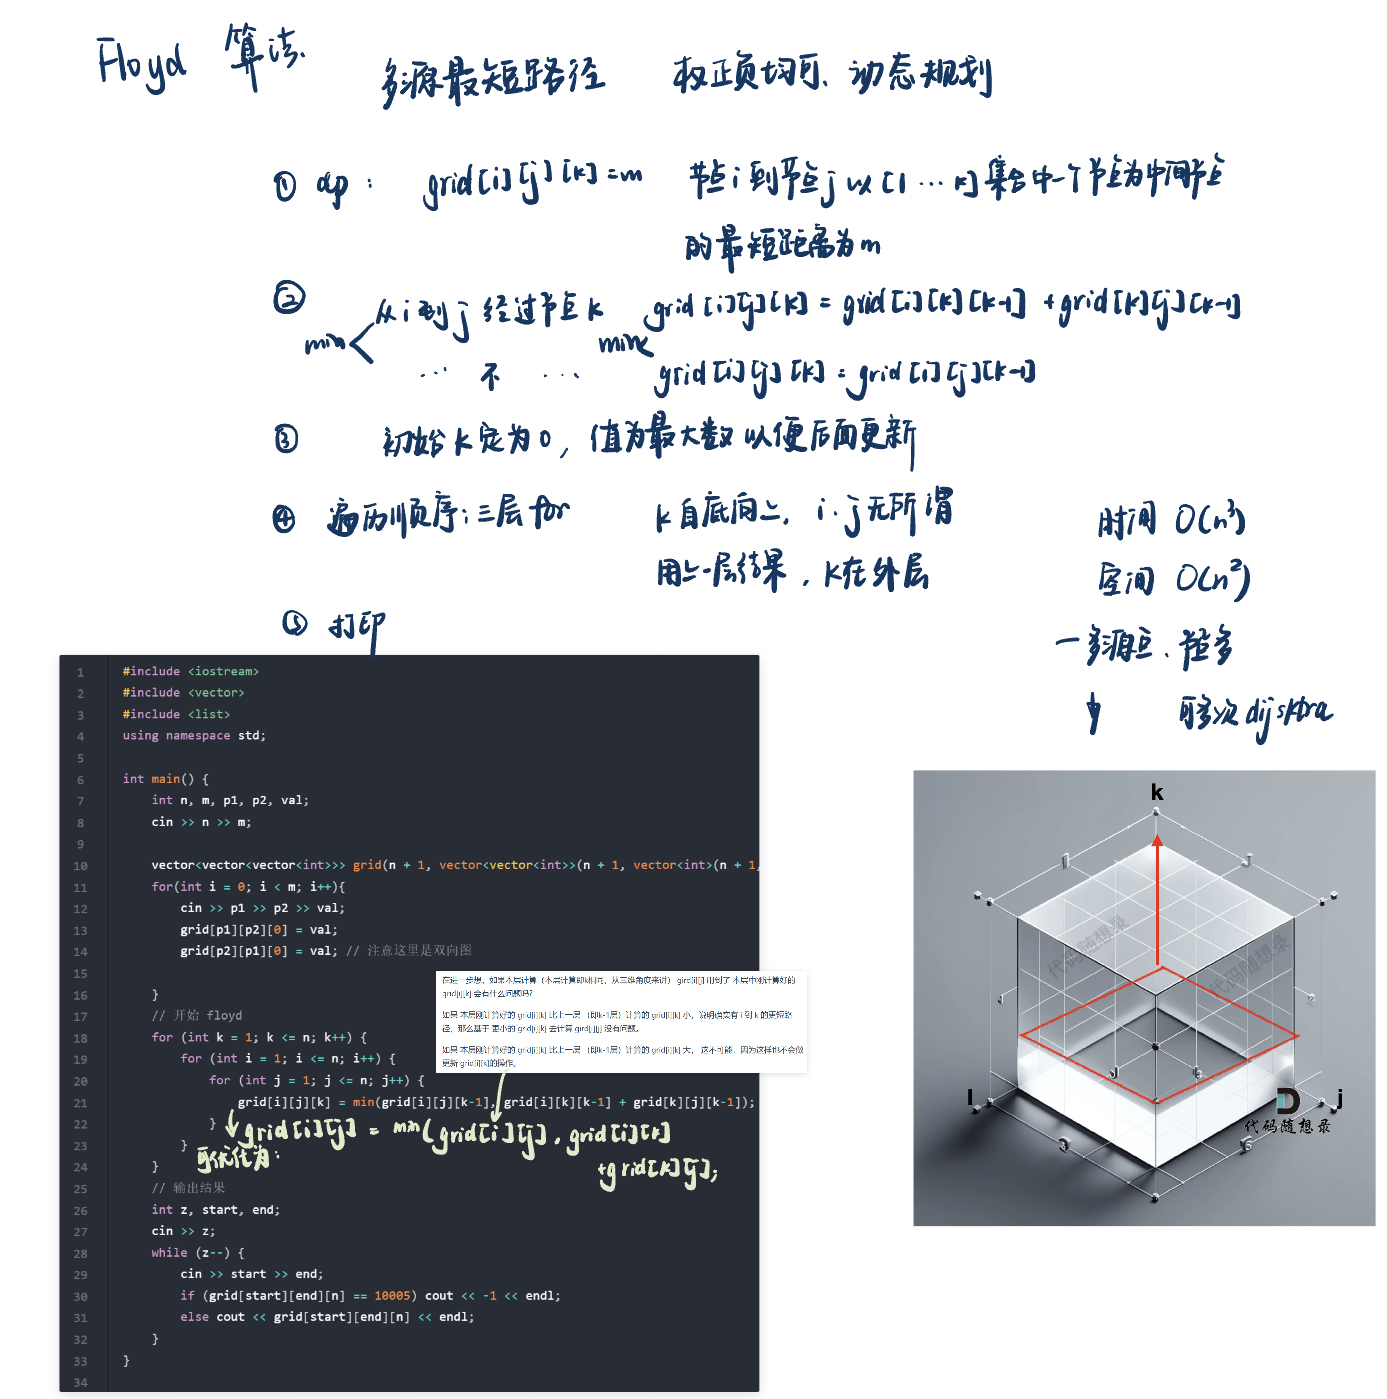 Floyd 算法
多源最短路径 权正负均可、动态规划
① dp: grid[i][j][k]=m 节点i到节点j以[1…k]集合中一个节点为中间节点
的最短距离为m
②
min 从i到j经过节点k min grid[i][j][k] = grid[i][k][k-1] + grid[k][j][k-1]
… 不 … grid[i][j][k] = grid[i][j][k-1]
③ 初始k定为0, 值为最大数以便后面更新
④ 遍历顺序: 三层for k自底向上, i.j无所谓
用上一层结果, k在外层
时间 O(n³)
空间 O(n²)
多源点
可多次dijsktra
⑤ 打印
1 #include <iostream>
2 #include <vector>
3 #include <list>
4 using namespace std;
5
6 int main() {
7 int n, m, p1, p2, val;
8 cin >> n >> m;
9
10 vector<vector<vector<int>>> grid(n + 1, vector<vector<int>>(n + 1, vector<int>(n + 1,
11 for(int i = 0; i < m; i++){
12 cin >> p1 >> p2 >> val;
13 grid[p1][p2][0] = val;
14 grid[p2][p1][0] = val; // 注意这里是双向图
15
16 }
17 // 开始 floyd
18 for (int k = 1; k <= n; k++) {
19 for (int i = 1; i <= n; i++) {
20 for (int j = 1; j <= n; j++) {
21 grid[i][j][k] = min(grid[i][j][k-1], grid[i][k][k-1] + grid[k][j][k-1]);
22 }
23 }
24 }
25 // 输出结果
26 int z, start, end;
27 cin >> z;
28 while (z--) {
29 cin >> start >> end;
30 if (grid[start][end][n] == 10005) cout << -1 << endl;
31 else cout << grid[start][end][n] << endl;
32 }
33 }
34
在进一步想，如果本层计算（本层计算即k相同，从三维角度来讲） gird[i][j] 用到了 本层中刚计算好的
grid[i][k] 会有什么问题吗？
如果 本层刚计算好的 grid[i][k] 比上一层 （即k-1层）计算的 grid[i][k] 小，说明确实有 i 到 k 的更短路
径，那么基于 更小的 grid[i][k] 去计算 gird[i][j] 没有问题。
如果 本层刚计算好的 grid[i][k] 比上一层 （即k-1层）计算的 grid[i][k] 大， 这不可能，因为这样也不会做
更新 grid[i][k]的操作。
grid[i][j] = min(grid[i][j], grid[i][k]
可优化为:
+grid[k][j]);
k
代码随想录
代码随想录
I
j
代码随想录